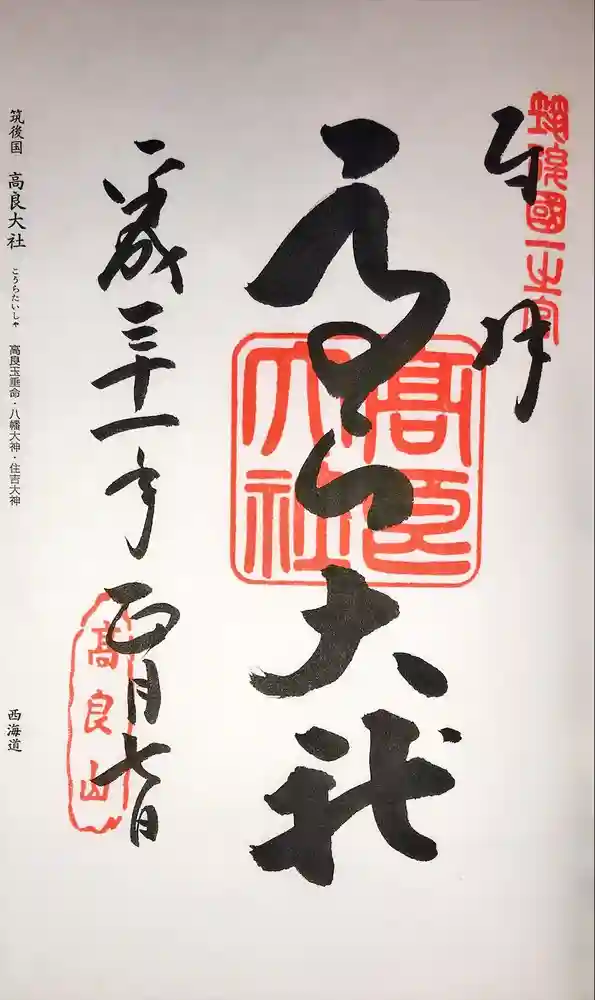 筑後國一之宮
奉拝
高良大社
高良大社
平成三十一年正月七日
高良山
筑後国 高良大社 こうらたいしゃ 高良玉垂命・八幡大神・住吉大神 西海道